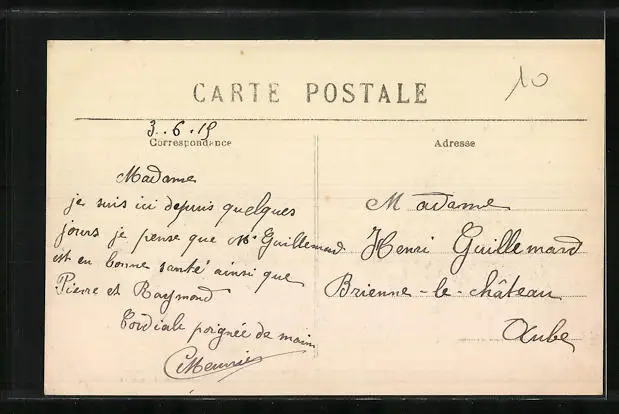 10
CARTE POSTALE
3.6.15
Correspondance
Madame
je suis ici depuis quelques
jours je pense que Mr Guillemard
est en bonne santé ainsi que
Pierre et Raymond
Cordiale poignée de main
CMeunier
Adresse
Madame
Henri Guillemard
Brienne-le-château
Aube